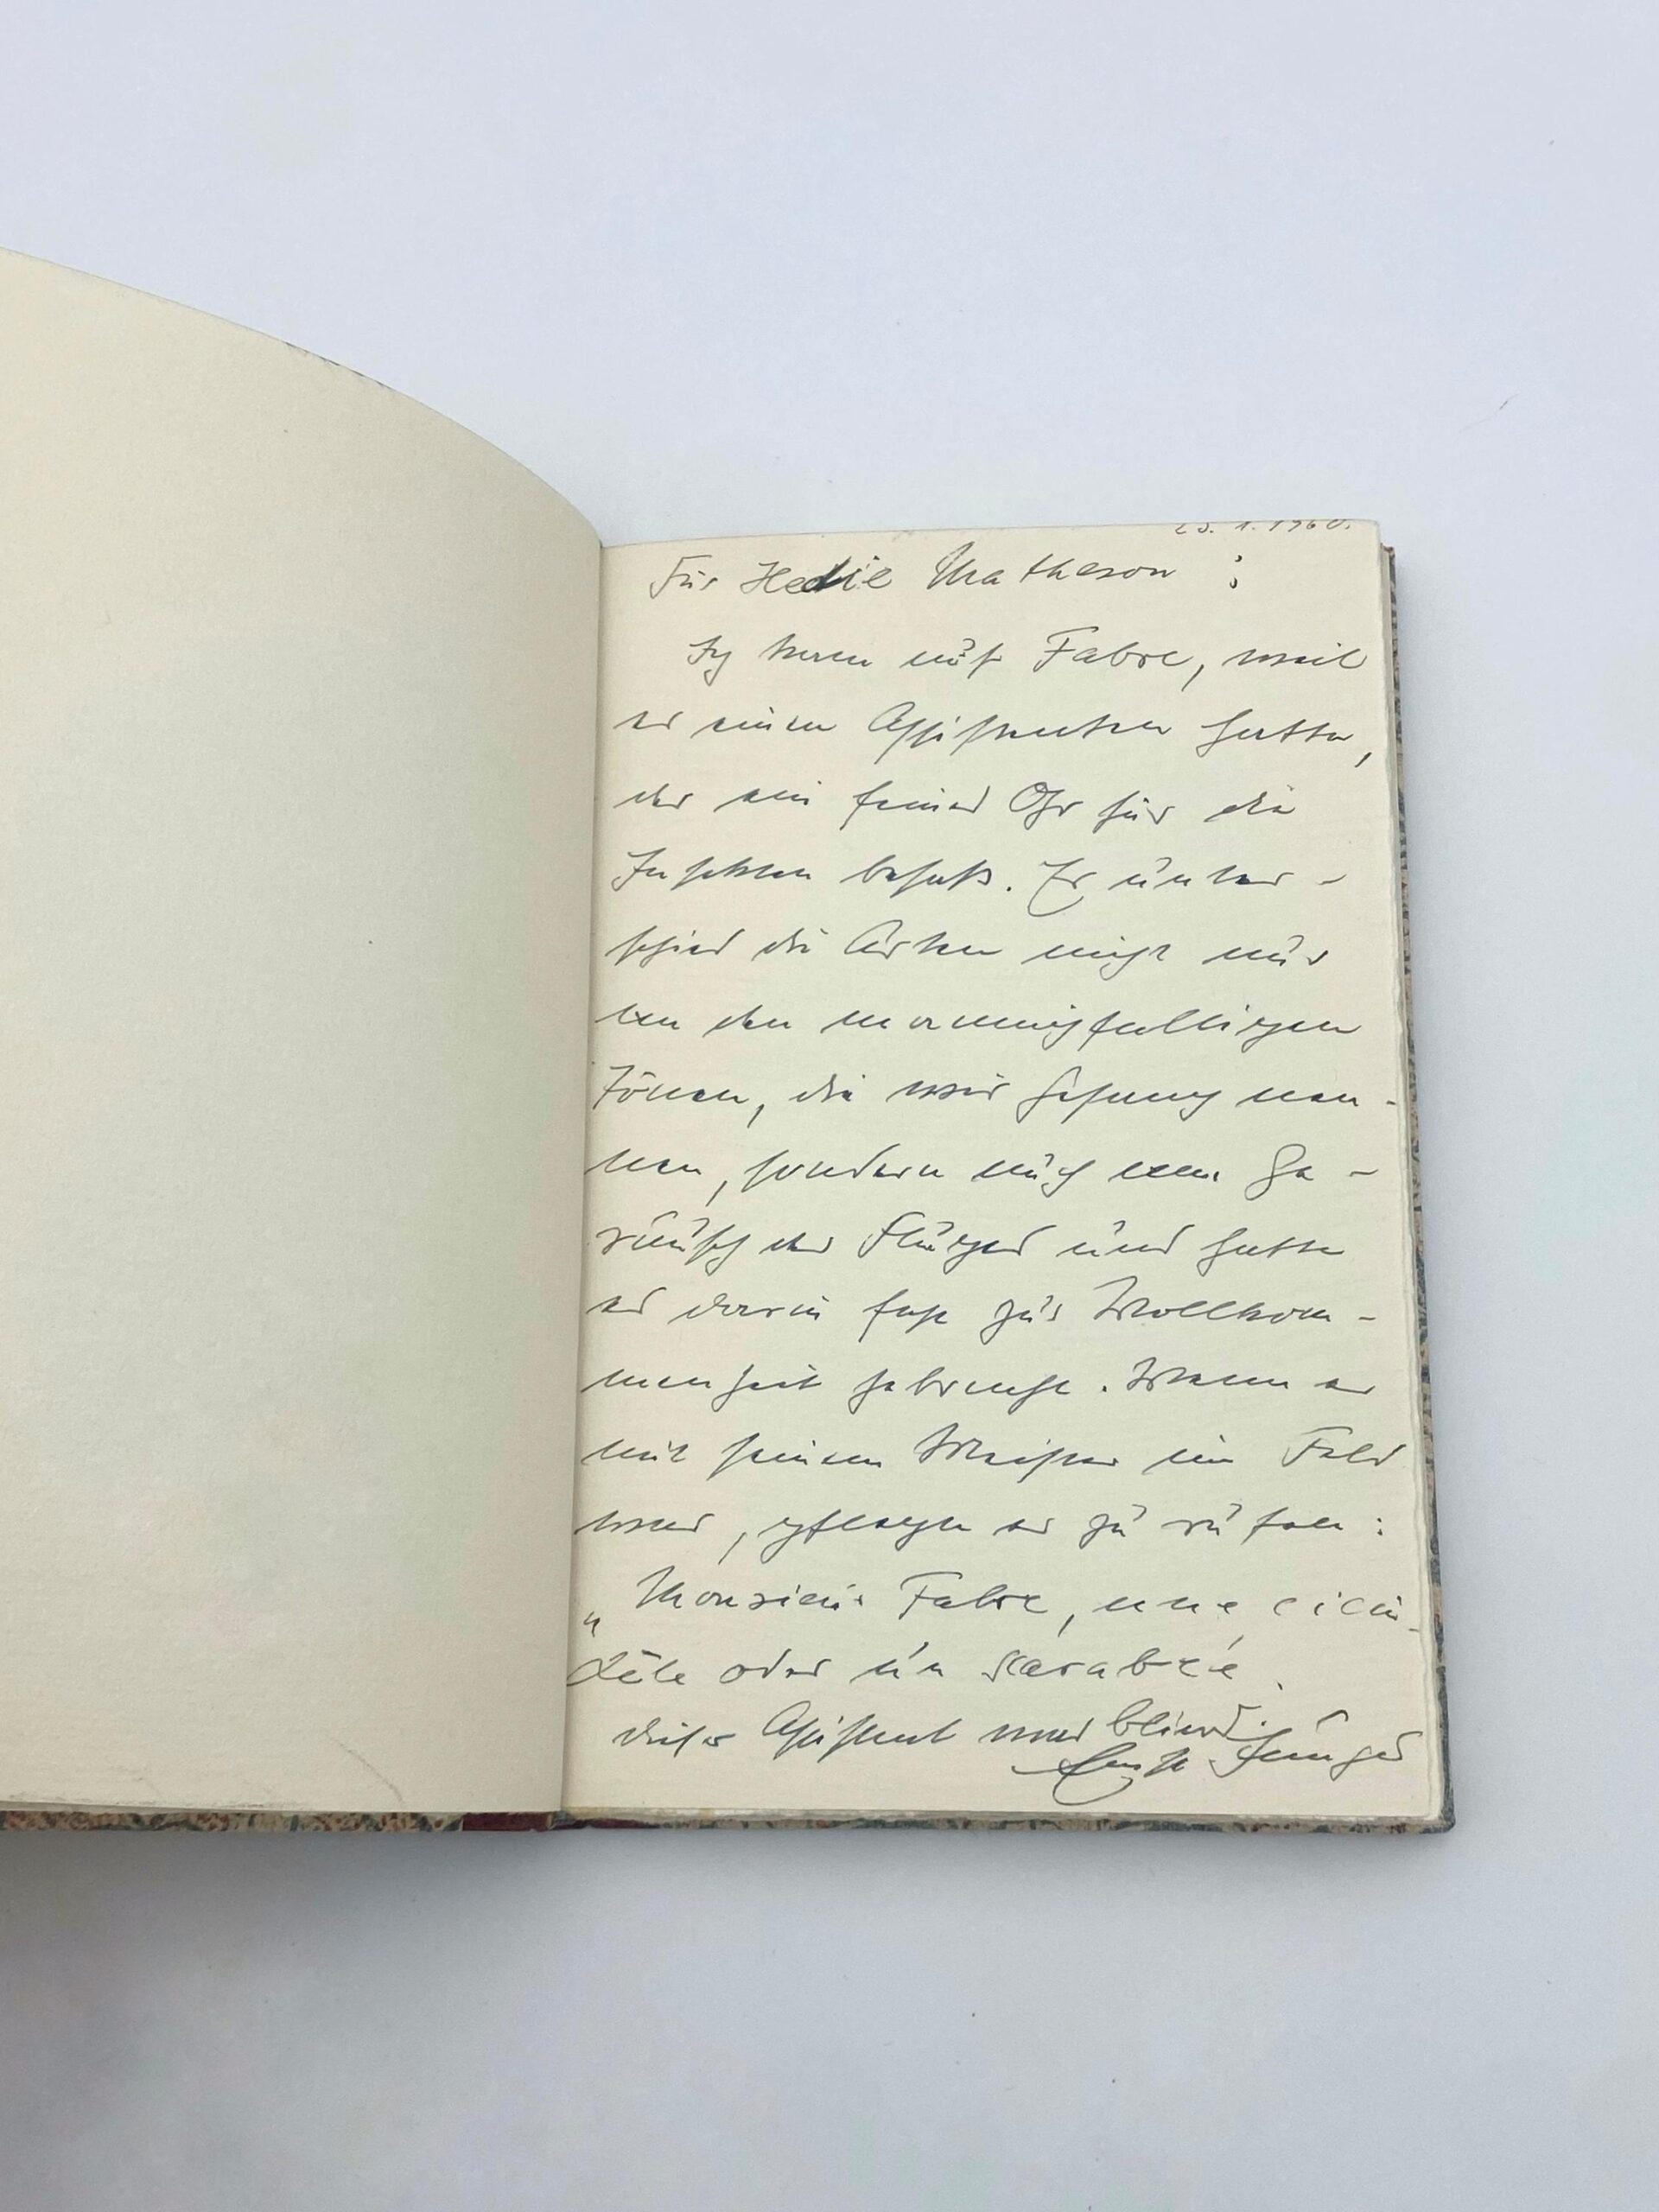 25. 1. 1960.
Für Hedie Matheson :
Ich kam auf Fabre, weil
er einen Assistenten hatte,
der ein feines Ohr für die
Insekten besaß. Er unter-
schied die Arten nicht nur
an den mannigfaltigen
Tönen, die wir Gesang nen-
nen, sondern auch am Ge-
räusch der Flügel und hatte
es darin fast zur Vollkom-
menheit gebracht. Wenn er
mit seinem Meister im Feld
war, pflegte er zu rufen:
„Monsieur Fabre, une cicin-
dèle oder un scarabée.
dieser Assistent war blind.
Ernst Jünger